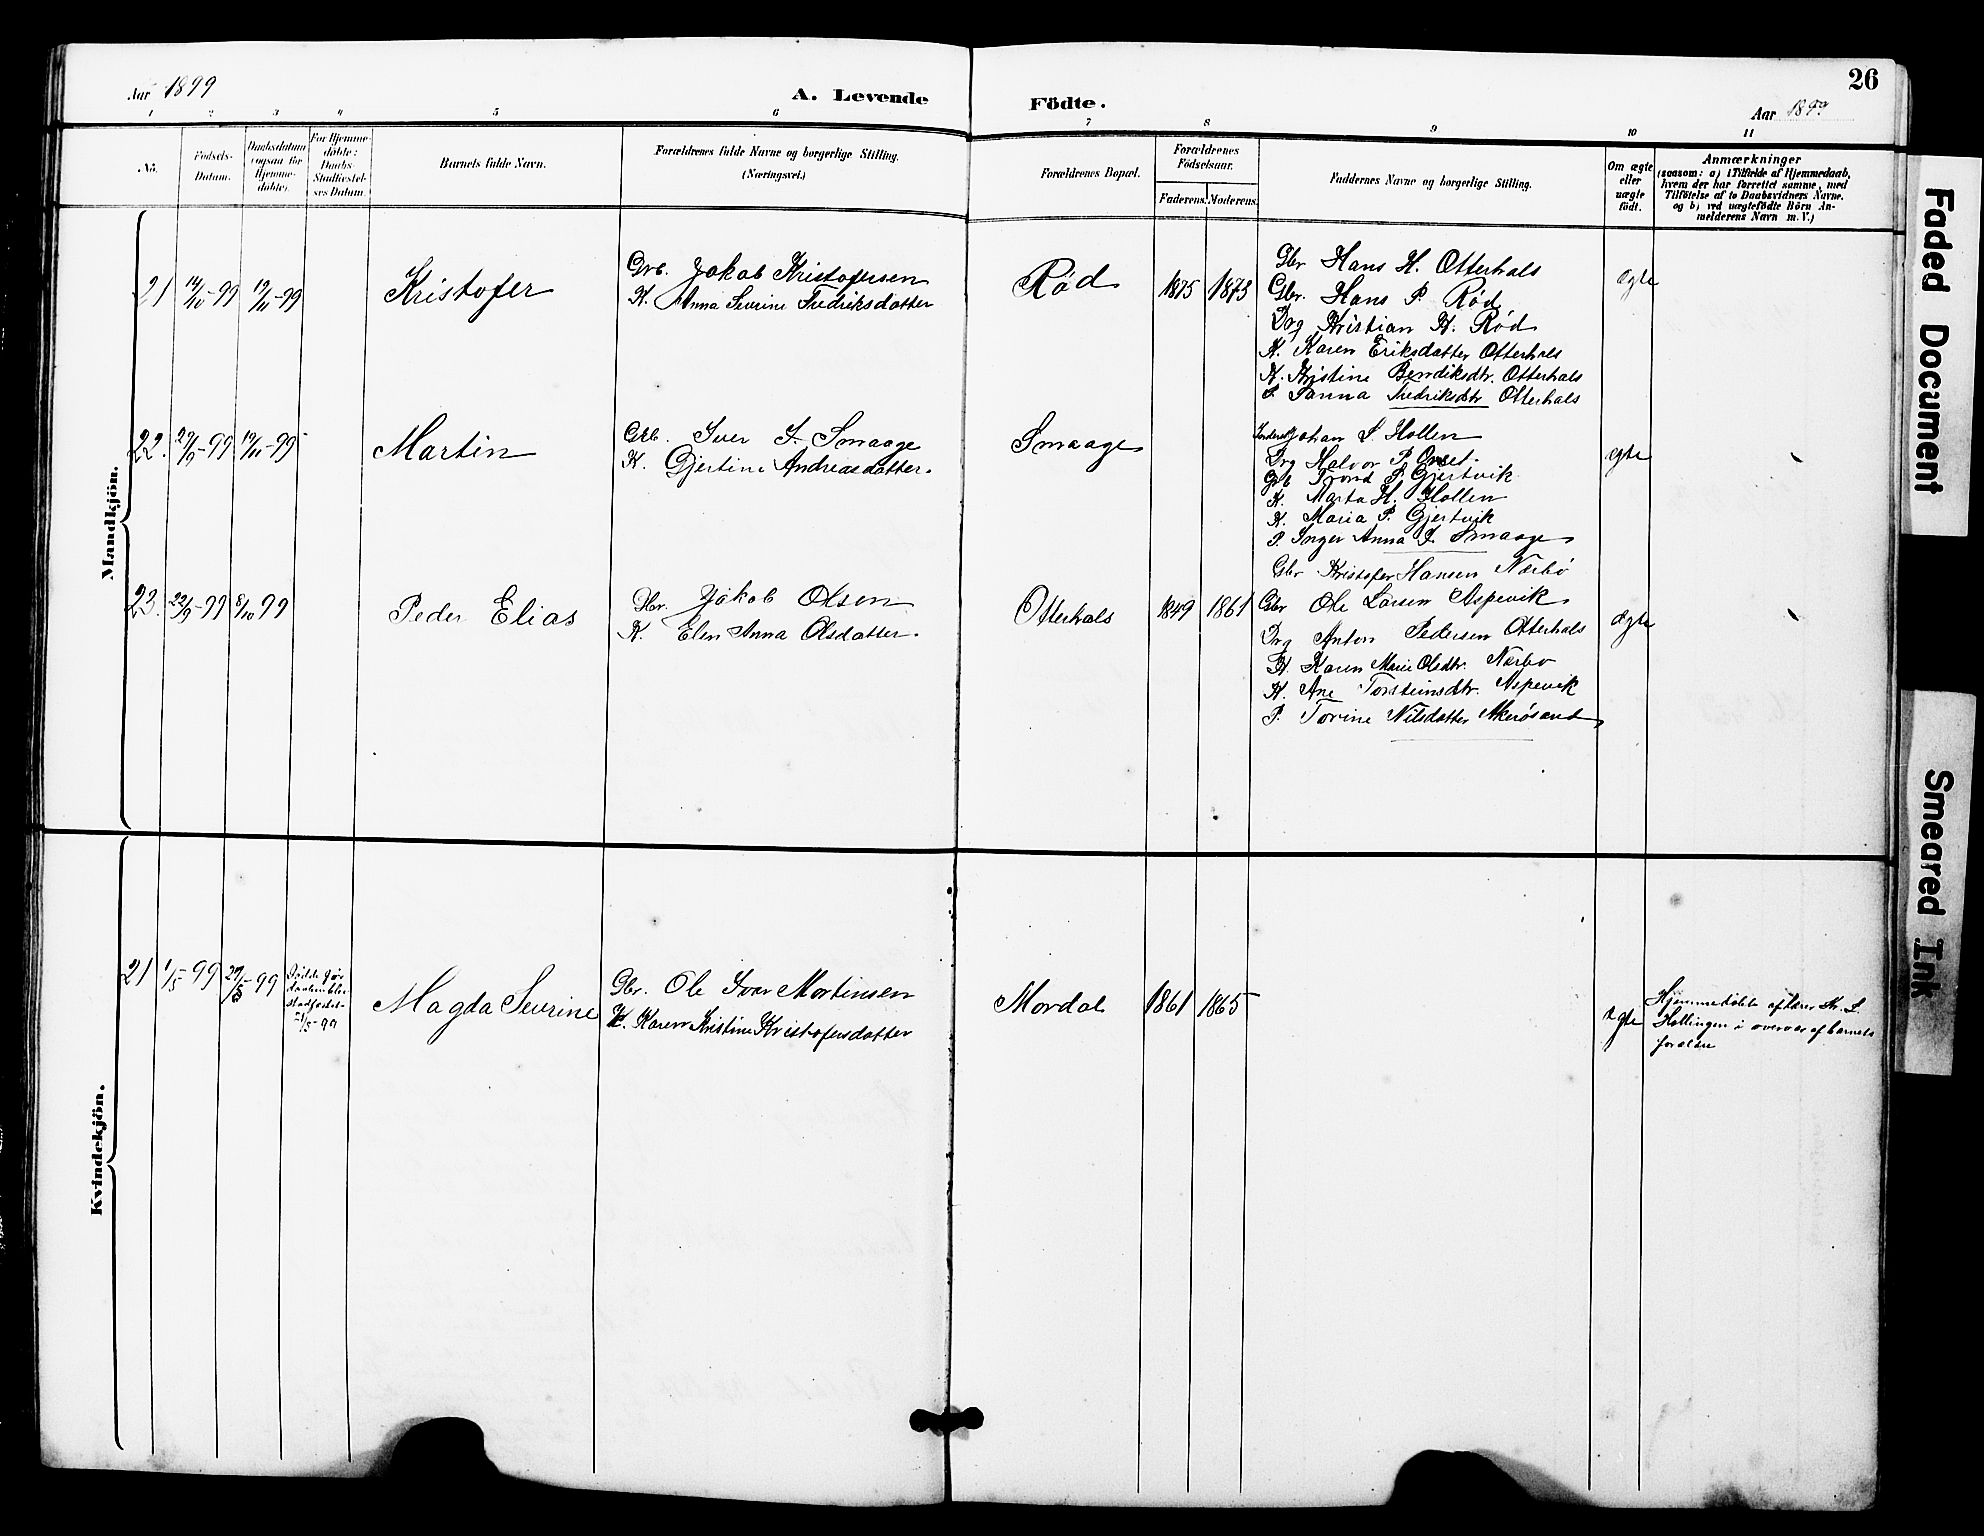 Aar 1899
A. Levende
Födte.
Aar 1899
26
1 2 3 4 5 6 7 8 9 10 11
No.
Födsels-
Datum.
Daabsdatum
(ogsaa for
Hjemme-
döbte).
For Hjemme-
döbte:
Daabs-
Stadfæstel-
ses Datum.
Barnets fulde Navn.
Forældrenes fulde Navne og borgerlige Stilling.
(Næringsvei.)
Forældrenes Bopæl.
Forældrenes
Födselsaar.
Faderens.
Moderens.
Faddernes Navne og borgerlige Stilling.
Om ægte
eller
uægte
født.
Anmærkninger
(saasom: a) i Tilfælde af Hjemmedaab,
hvem der har forrettet samme, med
Tilföielse af to Daabsvidners Navne.
og b) ved uægtefödte Börn An-
melderens Navn m. V.)
Mandkjön.
21 14/10-99 12/11-99
Kristofer
Grb. Jakob Kristofersen
K. Anna Sevrine Fredriksdatter
Rød
1875 1873
Gbr Hans H. Otterhals
Gbr. Hans P. Rød
Drg Kristian H. Rød
K. Karen Eriksdatter Otterhals
K. Kristine Bendiksdtr. Otterhals
P. Fredriksdtr Otterhals
ægte
22. 29/9-99 12/11-99
Martin
Grb. Iver I. Smaage
K. Gjertine Andreasdatter.
Smaage
Johan S. Hollen
Drg Halvor P.
Grb Trond P. Gjertvik
K. Marta H. Hollen
K. Maria P. Gjertvik
P. Inger Anna I. Smaage
ægte
23. 22/9-99 8/10 99
Peder Elias
Gbr. Jakob Olsen
K. Elen Anna Olsdatter.
Otterhals
1849 1861
Gbr Kristofer Hansen Nærbö
Gbr Ole Larsen Aspevik
Drg Anton Pedersen Otterhals
K Karen Marie Olsdtr. Nærbö
K. Ane Torsteinsdtr. Aspevik
P. Torine Nilsdatter Akerösund
ægte
Kvindekjön.
21 1/5-99 27/5-99
Dödde før
daaben blev
stadfæstet
21/5-99
Magda Sevrine
Gbr. Ole Iver Mortinsen
K. Karen Kristine Kristofersdatter
Mordal
1861 1865
ægte
Hjemmedøbte af lærer Kr. L.
Hollingen i overvær af barnets
forældre
Faded Document
Smeared Ink